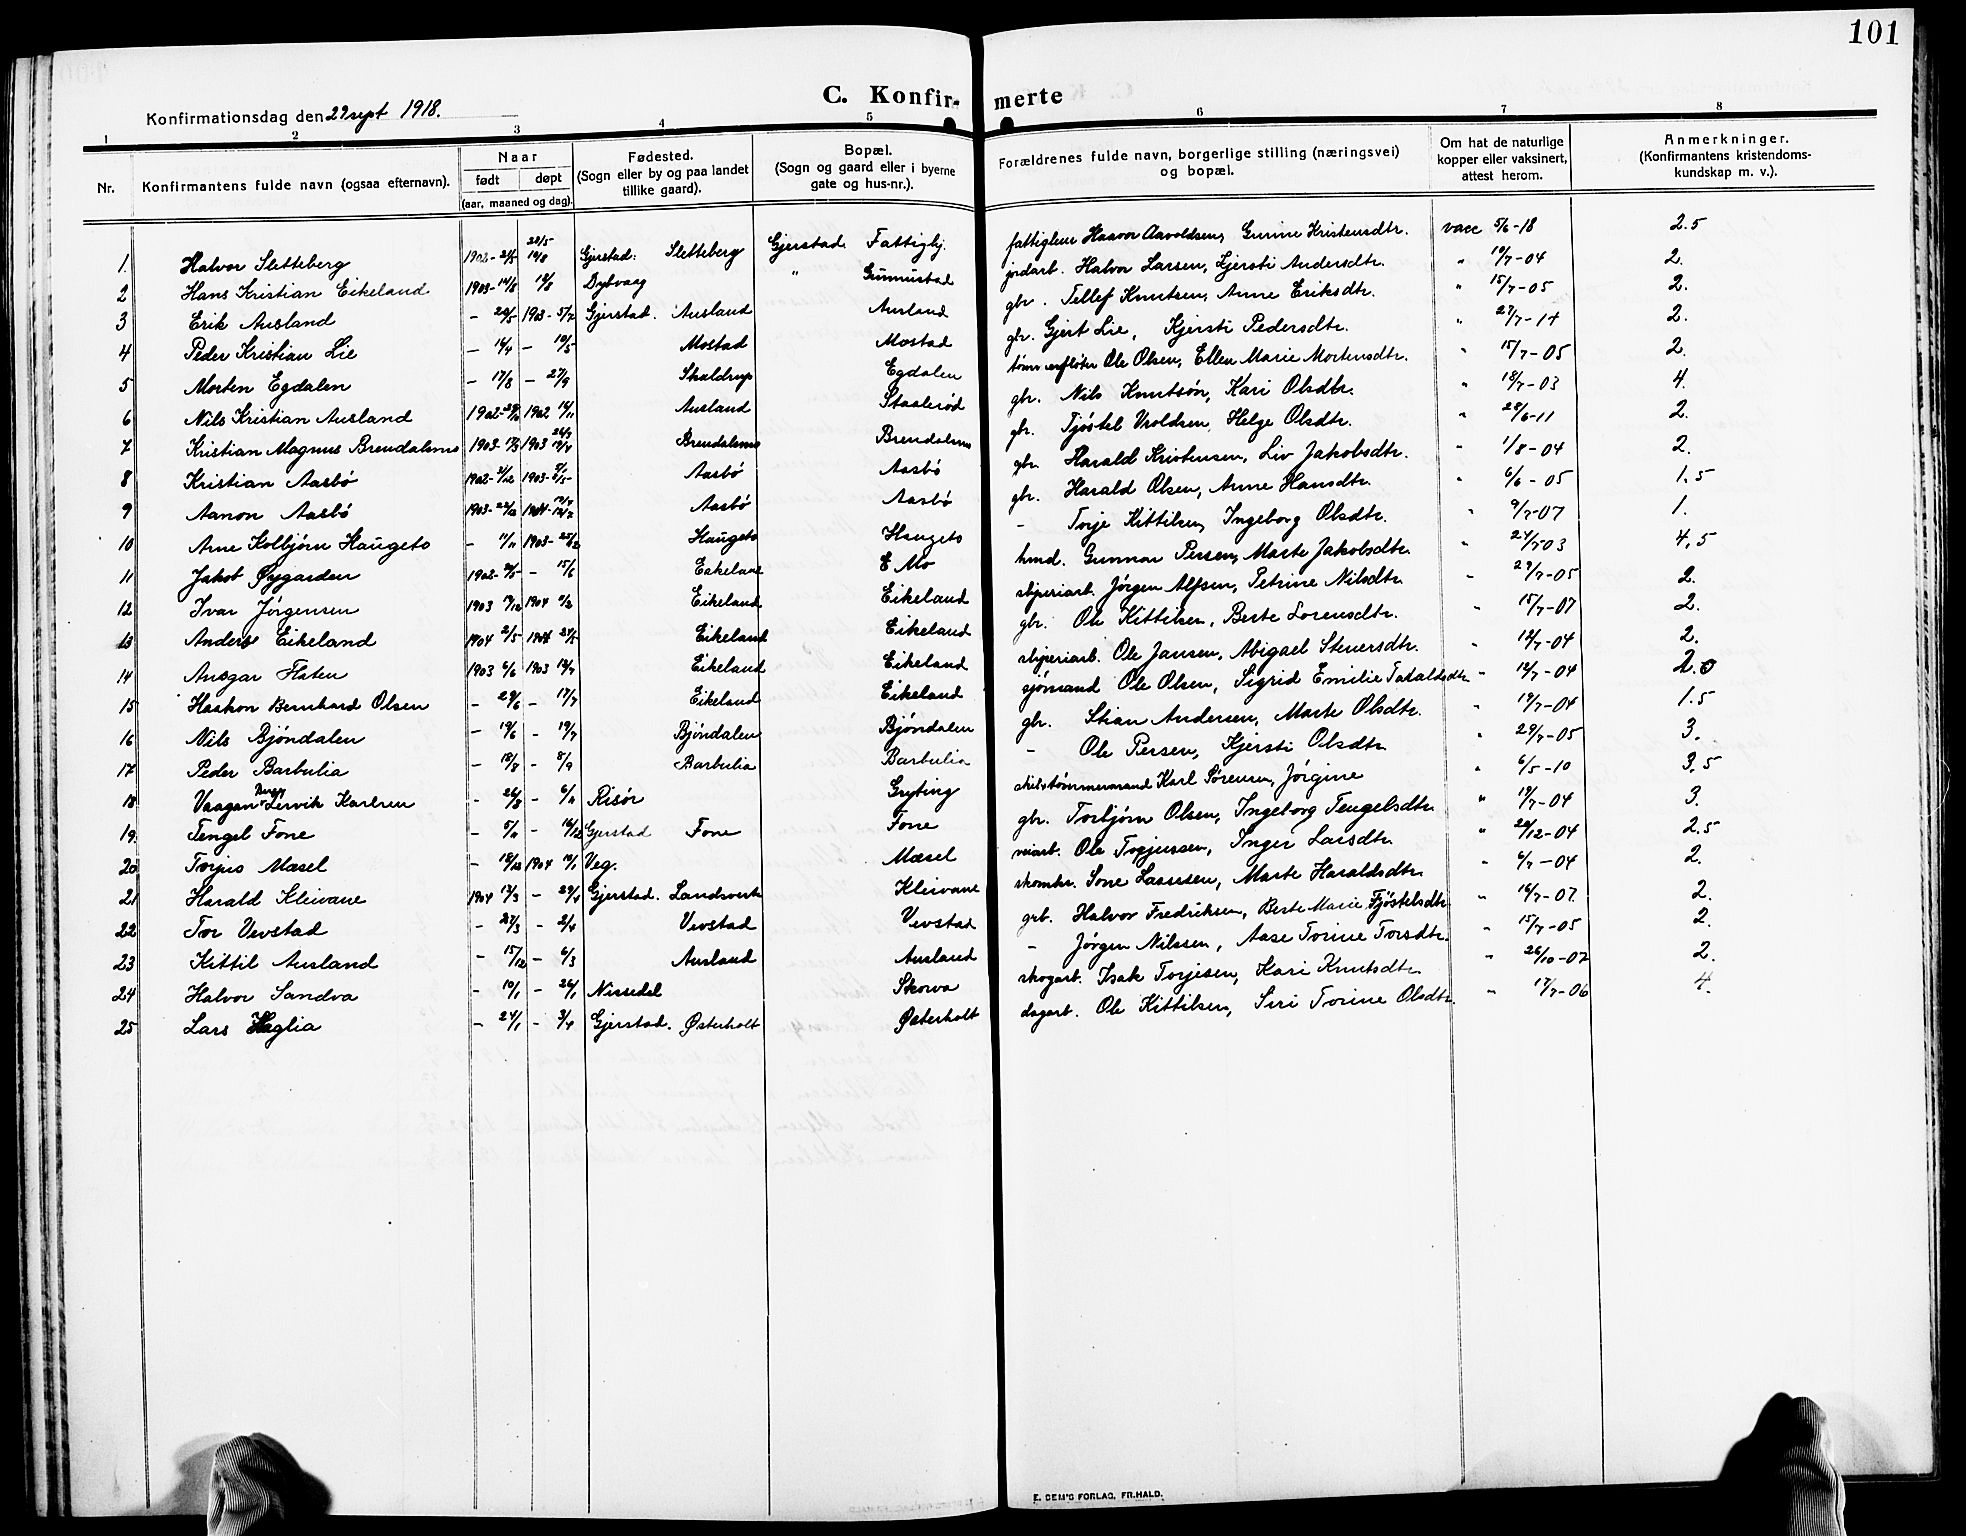 101
C. Konfir- merte
Konfirmationsdag den 29 sept 1918.
1 2 3 4 5 6 7 8
Nr. Konfirmantens fulde navn (ogsaa efternavn). Naar født døpt (aar, maaned og dag). Fødested. (Sogn eller by og paa landet tillike gaard). Bopæl. (Sogn og gaard eller i byerne gate og hus-nr.). Forældrenes fulde navn, borgerlige stilling (næringsvei) og bopæl. Om hat de naturlige kopper eller vaksinert, attest herom. Anmerkninger. (Konfirmantens kristendoms- kundskap m. v.).
1. Halvor Sletteberg Gjerstad: Sletteberg Gjerstad Fattiglj. Haavor Aavoldsen, Gurine Kristensdtr. vacc 5/6-18 2.5
2 Hans Kristian Eikeland 1903- Dybvaag " Gunnustad jordart. Halvor Larsen, Kjersti Andersdtr. " 19/7-04 2.
3 Erik Ausland - 20/5 1903- 5/7 Gjerstad. Ausland Ausland gbr. Tellef Knutsen, Anne Eriksdtr. " 15/7-05 2.
4 Peder Kristian Lie - 16/4 - 10/5 Mostad Mostad gbr. Gjert Lie, Kjersti Pedersdtr. " 27/7-14 2.
5 Morten Egdalen - 17/8 - 27/9 Skaldrup Egdalen Ole Olsen, Ellen Marie Mortensdtr. " 15/7-05 2.
6 Nils Kristian Ausland 1902- 1902 16/11 Ausland Staalerød gbr. Nils Knutsøn, Kari Olsdtr. " 18/7-03 4.
7 Kristian Magnus Brendalsmo 1903- 1903 Brendalsmo Brendalsmo gbr. Tjøstel Vroldsen, Helge Olsdtr. " 28/6-11 2.
8 Kristian Aasbø 1902- 1903- Aasbø Aasbø gbr. Harald Kristensen, Liv Jakobsdtr. " 1/8-04 2.
9 Aanon Aasbø 1903- 1904- Aasbø Aasbø gbr. Harald Olsen, Anne Hansdtr. " 6/6-05 1.5
10 Arne Kolbjørn Haugeto - 11/11 1903- 25/12 Haugeto Haugeto - Torje Kittilsen, Ingeborg Olsdtr. " 9/7-07 1.
11 Jakob Øygarden 1902- - 15/6 Eakeland E Mo hmd. Gunnar Persen, Marte Jakobsdtr. " 4,5
12 Ivar Jørgensen 1903 1904 Eikeland Eikeland Jørgen Alfsen, Petrine Nilsdtr. " 29/7-05 2.
13 Anders Eikeland 1904 2/5 1904 Eikeland Eikeland gbr. Ole Kittilsen, Berte Lorensdtr. " 15/7-07 2.
14 Ansgar Flaten 1903 6/6 1903 Eikeland Eikeland Ole Jansen, Abigael Stenersdtr. " 12/7-04 2.
15 Haakon Bernhard Olsen - 29/6 - 17/7 Eikeland Eikeland sjømand Ole Olsen, Sigrid Emilie " 12/7-04 2.0
16 Nils Bjøndalen - 19/6 - 19/7 Bjøndalen Bjøndalen gbr. Stian Andersen, Marte Olsdtr. " 19/7-04 1.5
17 Peder Barbulia - 18/8 - 8/9 Barbulia Barbulia - Ole Persen, Kjersti Olsdtr. " 29/7-05 3.
18 Vaagan Lervik Karlsen - 26/8 - 6/11 Risør Gryting Karl Sørensen, Jørgine " 6/5-10 3,5
19. Tengel Fone - 5/11 - 16/12 Gjerstad Fone Fone gbr. Torbjørn Olsen, Ingeborg Tengelsdtr. " 19/7-04 3.
20 Torjus Mæsel - 18/12 1904 10/1 Veg. Mæsel veiarb. Ole Torjussen, Inger Larsdtr. " 20/12-04 2.5
21 Harald Kleivane 1904 13/3 - 29/4 Gjerstad. Landsverk Kleivane skomkr. Sone Lassesen, Marte Haraldsdtr. " 6/7-04 2.
22 Tor Vevstad - 27/3 - 2/4 Vevstad Vevstad grb. Halvor Fredriksen, Berte Marie Tjøstelsdtr. " 16/7-07. 2.
23 Kittil Ausland - 15/12 - 6/3 Ausland Ausland - Jørgen Nilssen, Aase Torine Torsdtr. " 15/7-05 2.
24 Halvor Sandva - 10/1 - 26/1 Nissedal Skorva skogarb. Isak Torjesen, Kari Knutsdtr. " 26/10-07 2.
25 Lars Haglia - 24/1 - 3/4 Gjerstad. Østerholt Østerholt dagarb. Ole Kittilsen, Siri Torine Olsdtr. " 17/7-06 4.
E. SEM'S FORLAG, FR.HALD.